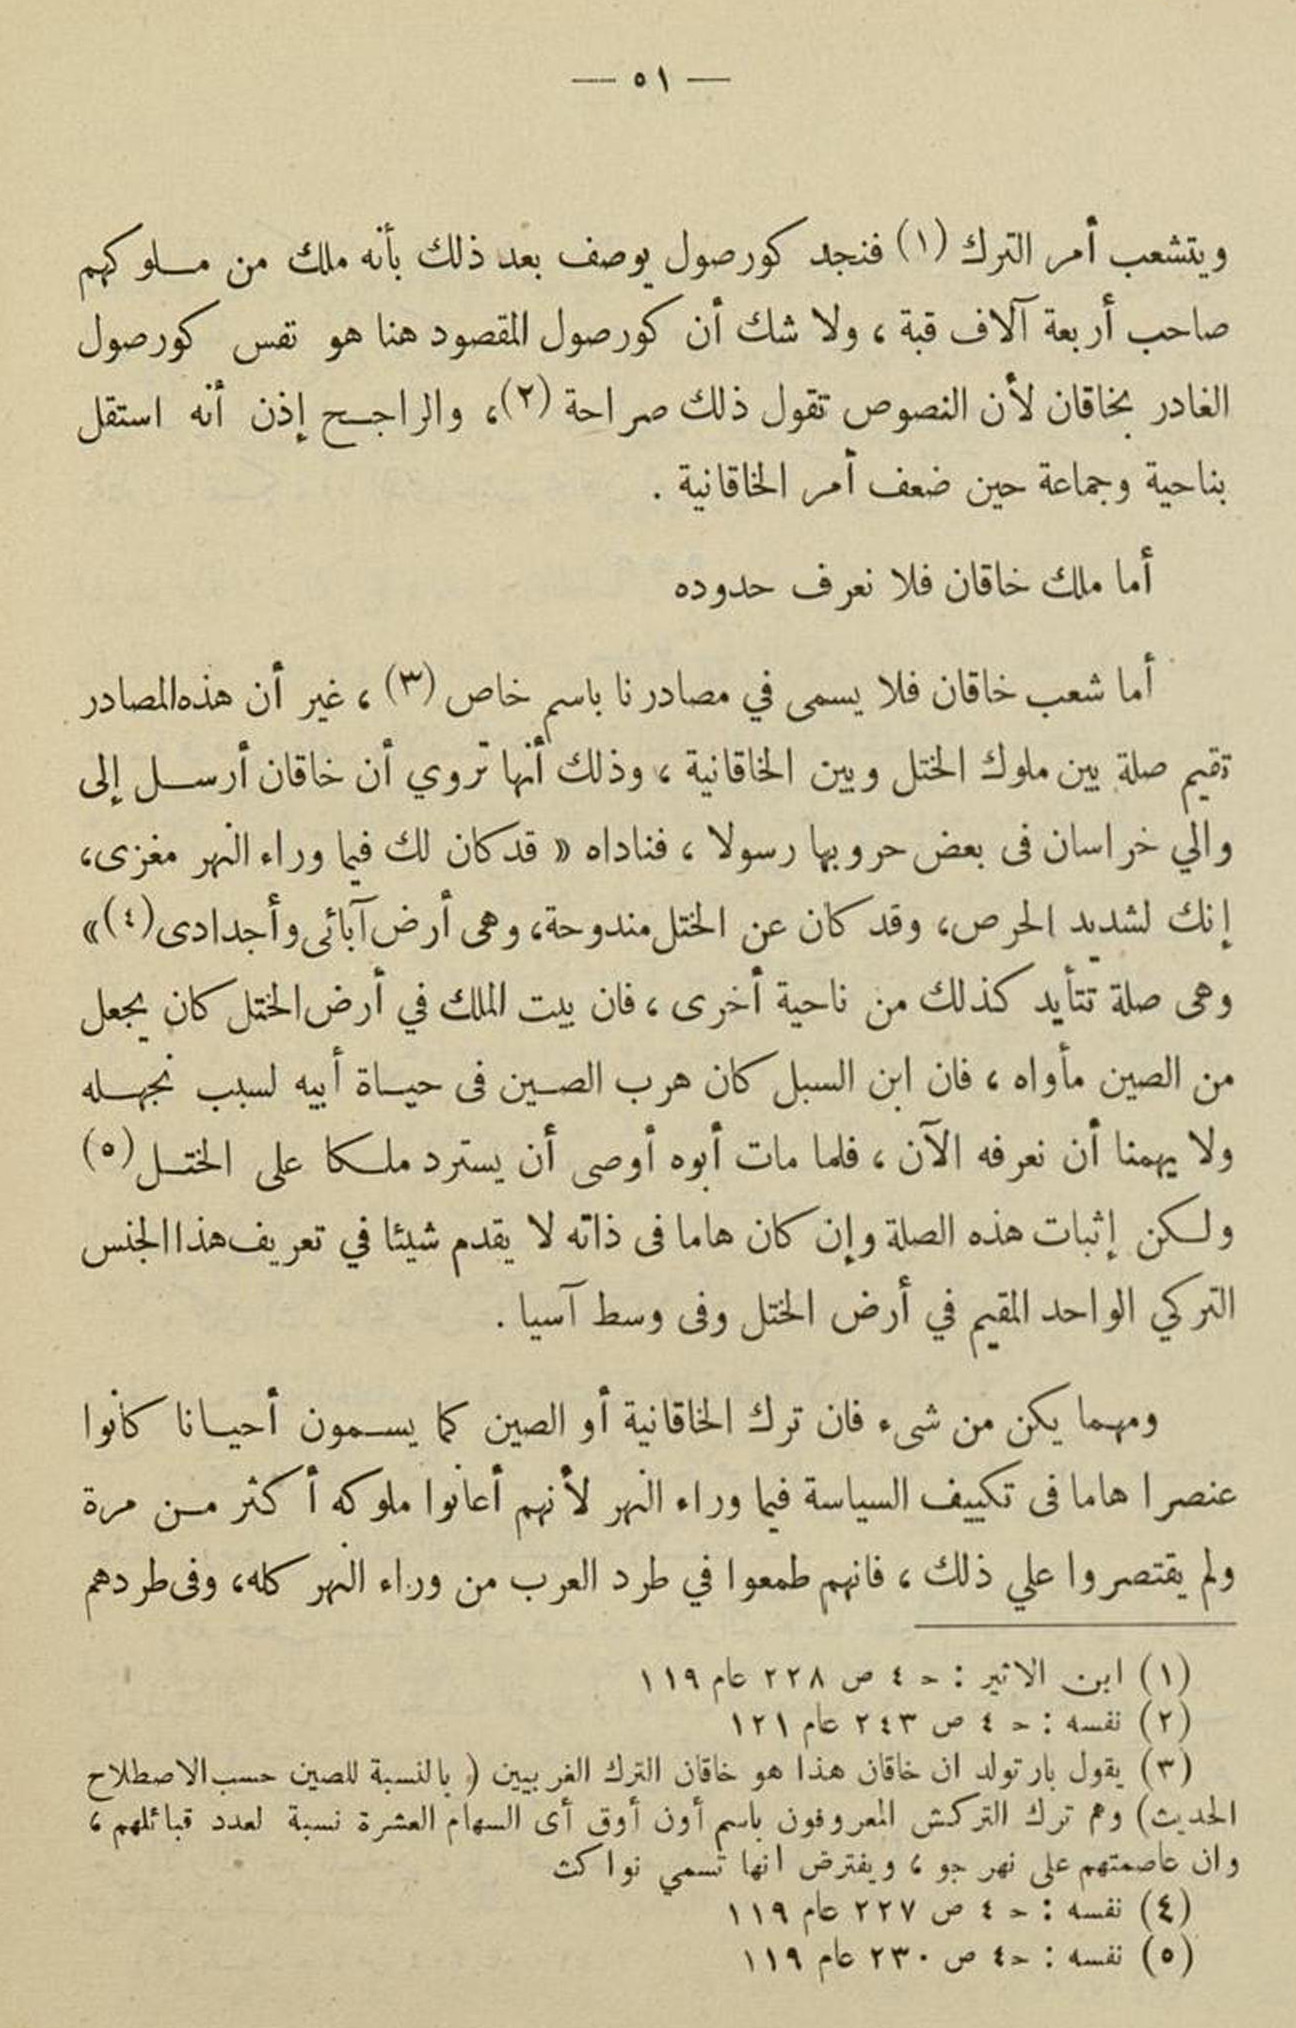 — ٥١ —
ويتشعب أمر الترك (١) فنجد كورصول يوصف بعد ذلك بأنه ملك من ملوكهم
صاحب أربعة آلاف قبة ، ولا شك أن كورصول المقصود هنا هو نفس كورصول
الغادر بخاقان لأن النصوص تقول ذلك صراحة (٢)، والراجح إذن أنه استقل
بناحية وجماعة حين ضعف أمر الخاقانية .
أما ملك خاقان فلا نعرف حدوده
أما شعب خاقان فلا يسمى في مصادرنا باسم خاص (٣) ، غير أن هذه المصادر
تقيم صلة بين ملوك الختل وبين الخاقانية ، وذلك أنها تروي أن خاقان أرسل إلى
والي خراسان فى بعض حروبها رسولا ، فناداه « قد كان لك فيما وراء النهر مغزى،
إنك لشديد الحرص، وقد كان عن الختل مندوحة، وهى أرض آبائى وأجدادى (٤) »
وهى صلة تتأيد كذلك من ناحية أخرى ، فان بيت الملك في أرض الختل كان يجعل
من الصين مأواه ، فان ابن السبل كان هرب الصين فى حياة أبيه لسبب نجهله
ولا يهمنا أن نعرفه الآن ، فلما مات أبوه أوصى أن يسترد ملكا على الختل (٥)
ولكن إثبات هذه الصلة وإن كان هاما فى ذاته لا يقدم شيئا في تعريف هذا الجنس
التركي الواحد المقيم في أرض الختل وفى وسط آسيا .
ومهما يكن من شىء فان ترك الخاقانية أو الصين كما يسمون أحيانا كانوا
عنصرا هاما فى تكييف السياسة فيما وراء النهر لأنهم أعانوا ملوكه أكثر من مرة
ولم يقتصروا علي ذلك ، فانهم طمعوا في طرد العرب من وراء النهر كله، وفى طردهم
(١) ابن الاثير : حـ ٤ ص ٢٢٨ عام ١١٩
(٢) نفسه : حـ ٤ ص ٢٤٣ عام ١٢١
(٣) يقول بارتولد ان خاقان هذا هو خاقان الترك الغربيين ( بالنسبة للصين حسب الاصطلاح
الحديث) وهم ترك التركش المعروفون باسم أون أوق أى السهام العشرة نسبة لعدد قبائلهم ،
وان عاصمتهم على نهر جو ، ويفترض انها تسمي نواكث
(٤) نفسه : حـ ٤ ص ٢٢٧ عام ١١٩
(٥) نفسه : حـ٤ ص ٢٣٠ عام ١١٩